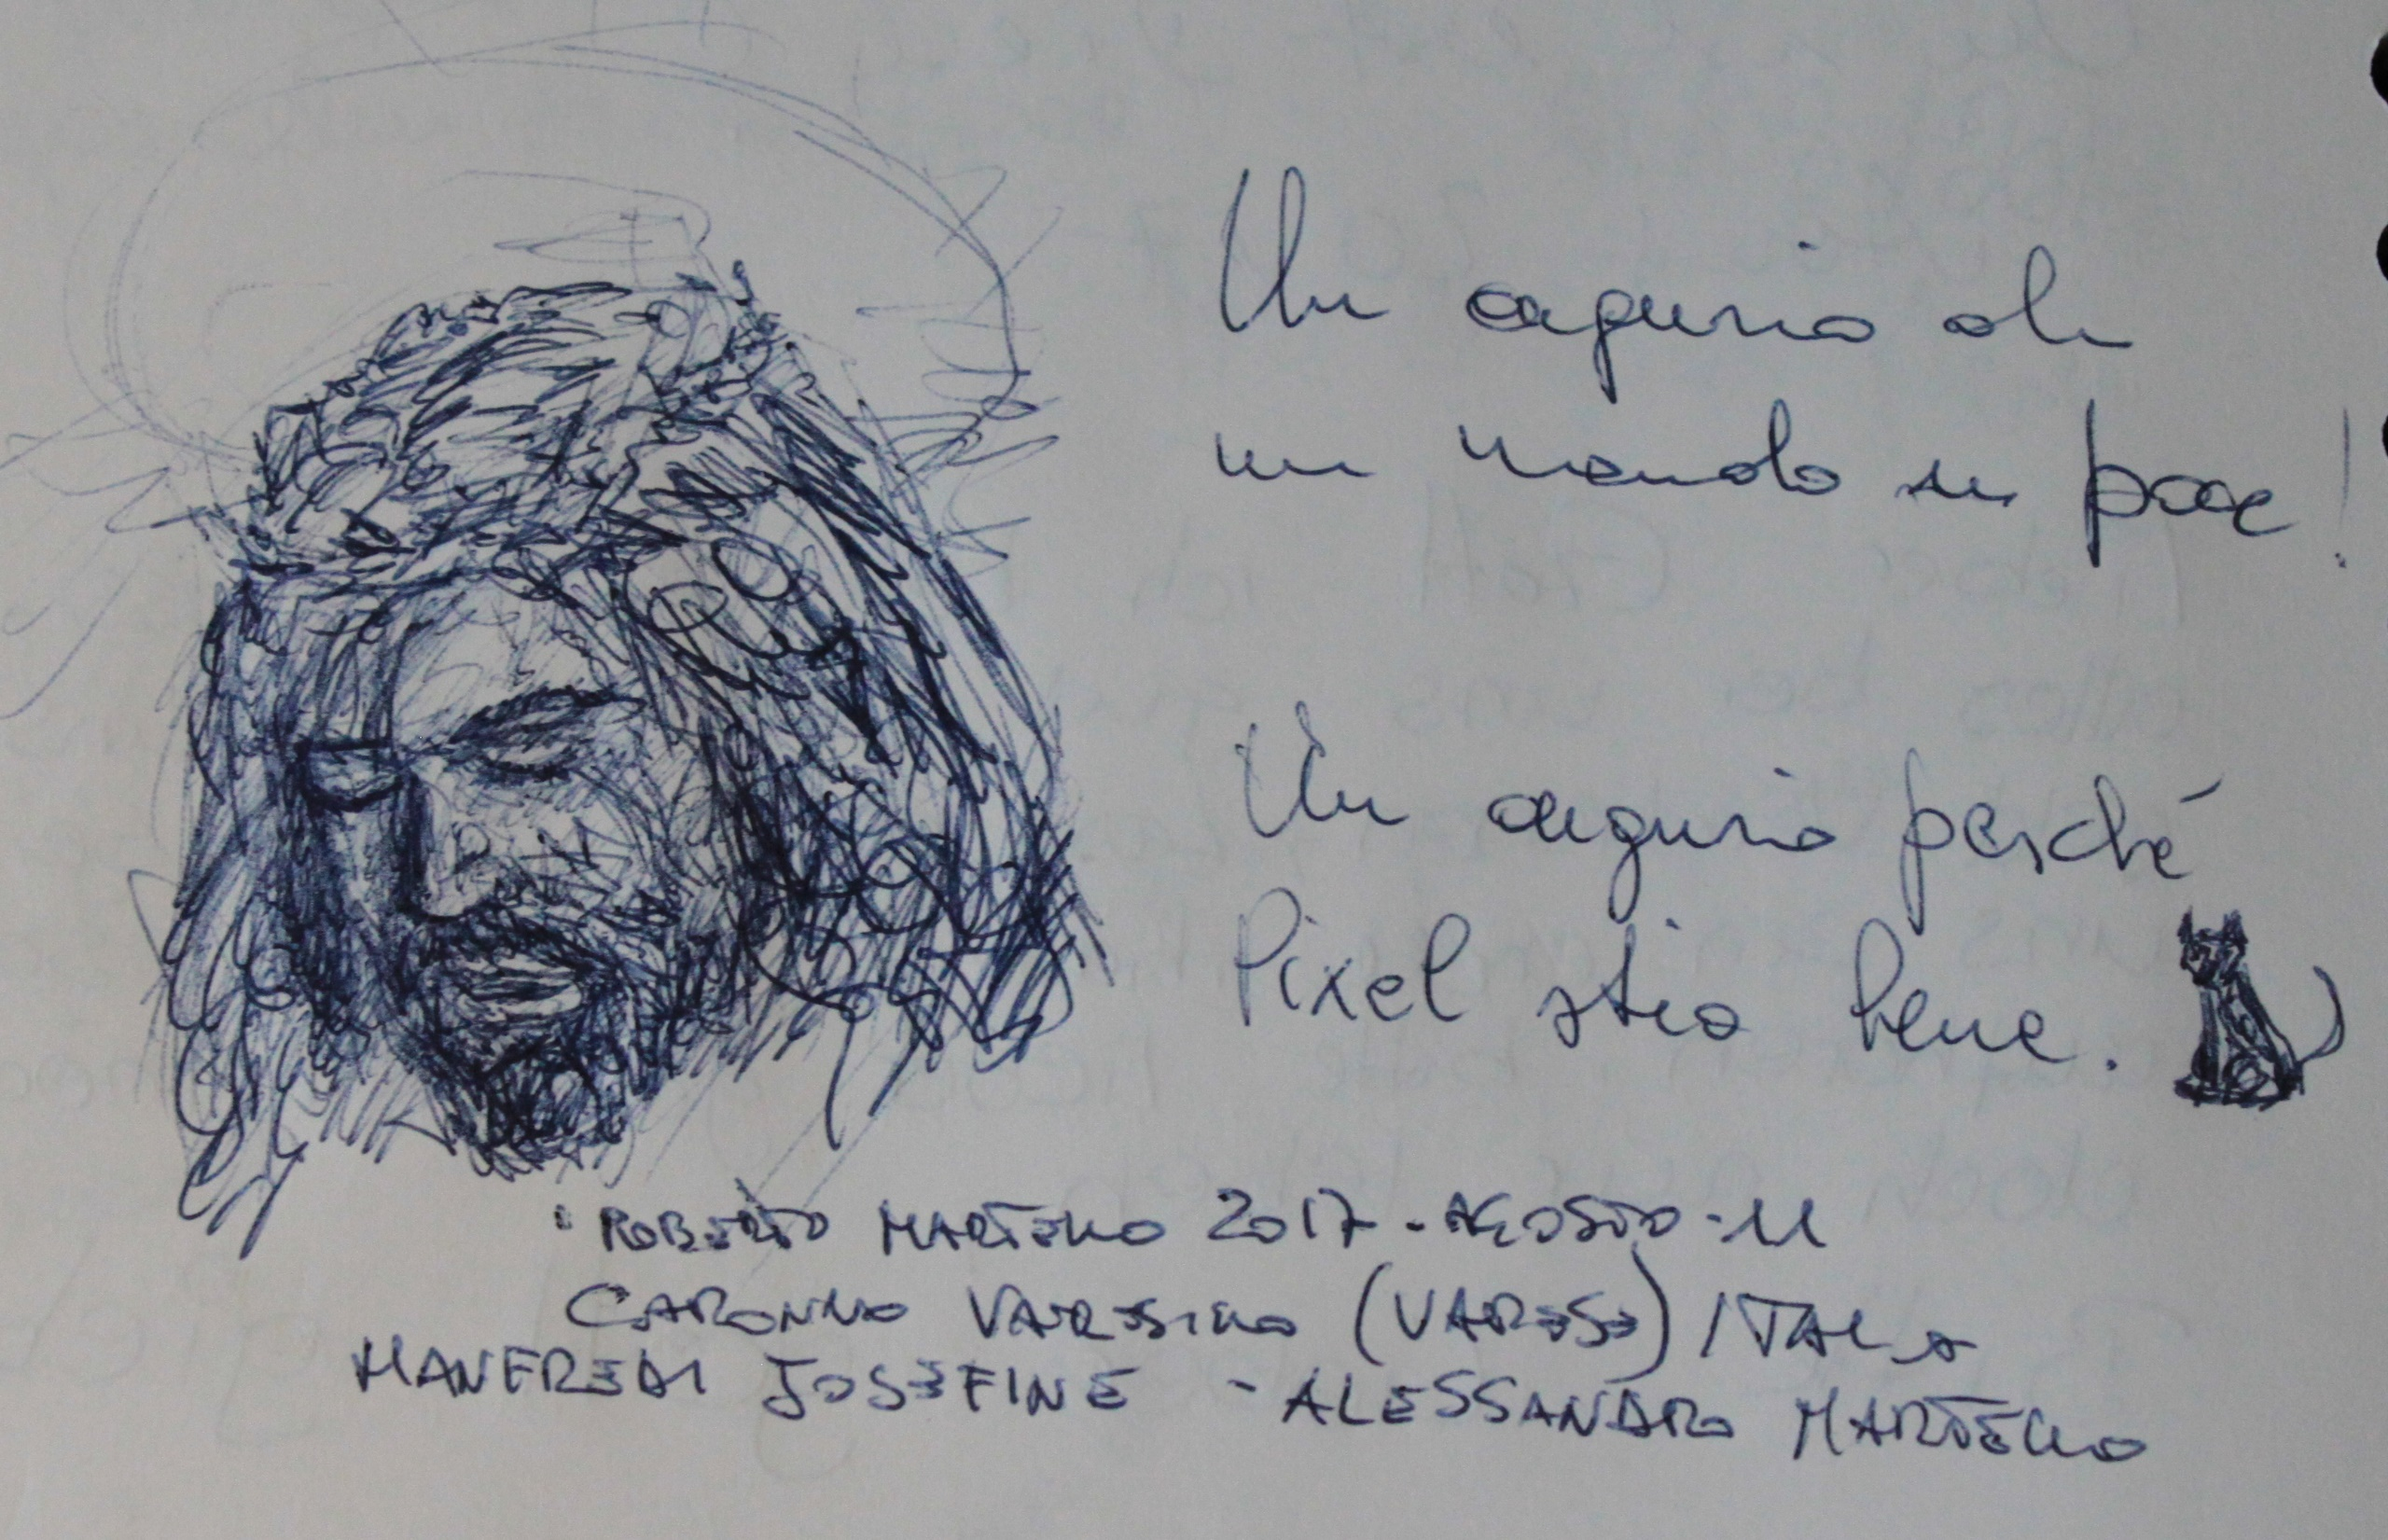 Un augurio di
un mondo in pace!
Un augurio perché
Pixel stia bene.
ROBERTO MARTENO 2017 - AGOSTO - 11
CARONNO VARESINO (VARESE) ITALIA
MANFREDI JOSEFINE - ALESSANDRO MARTENO